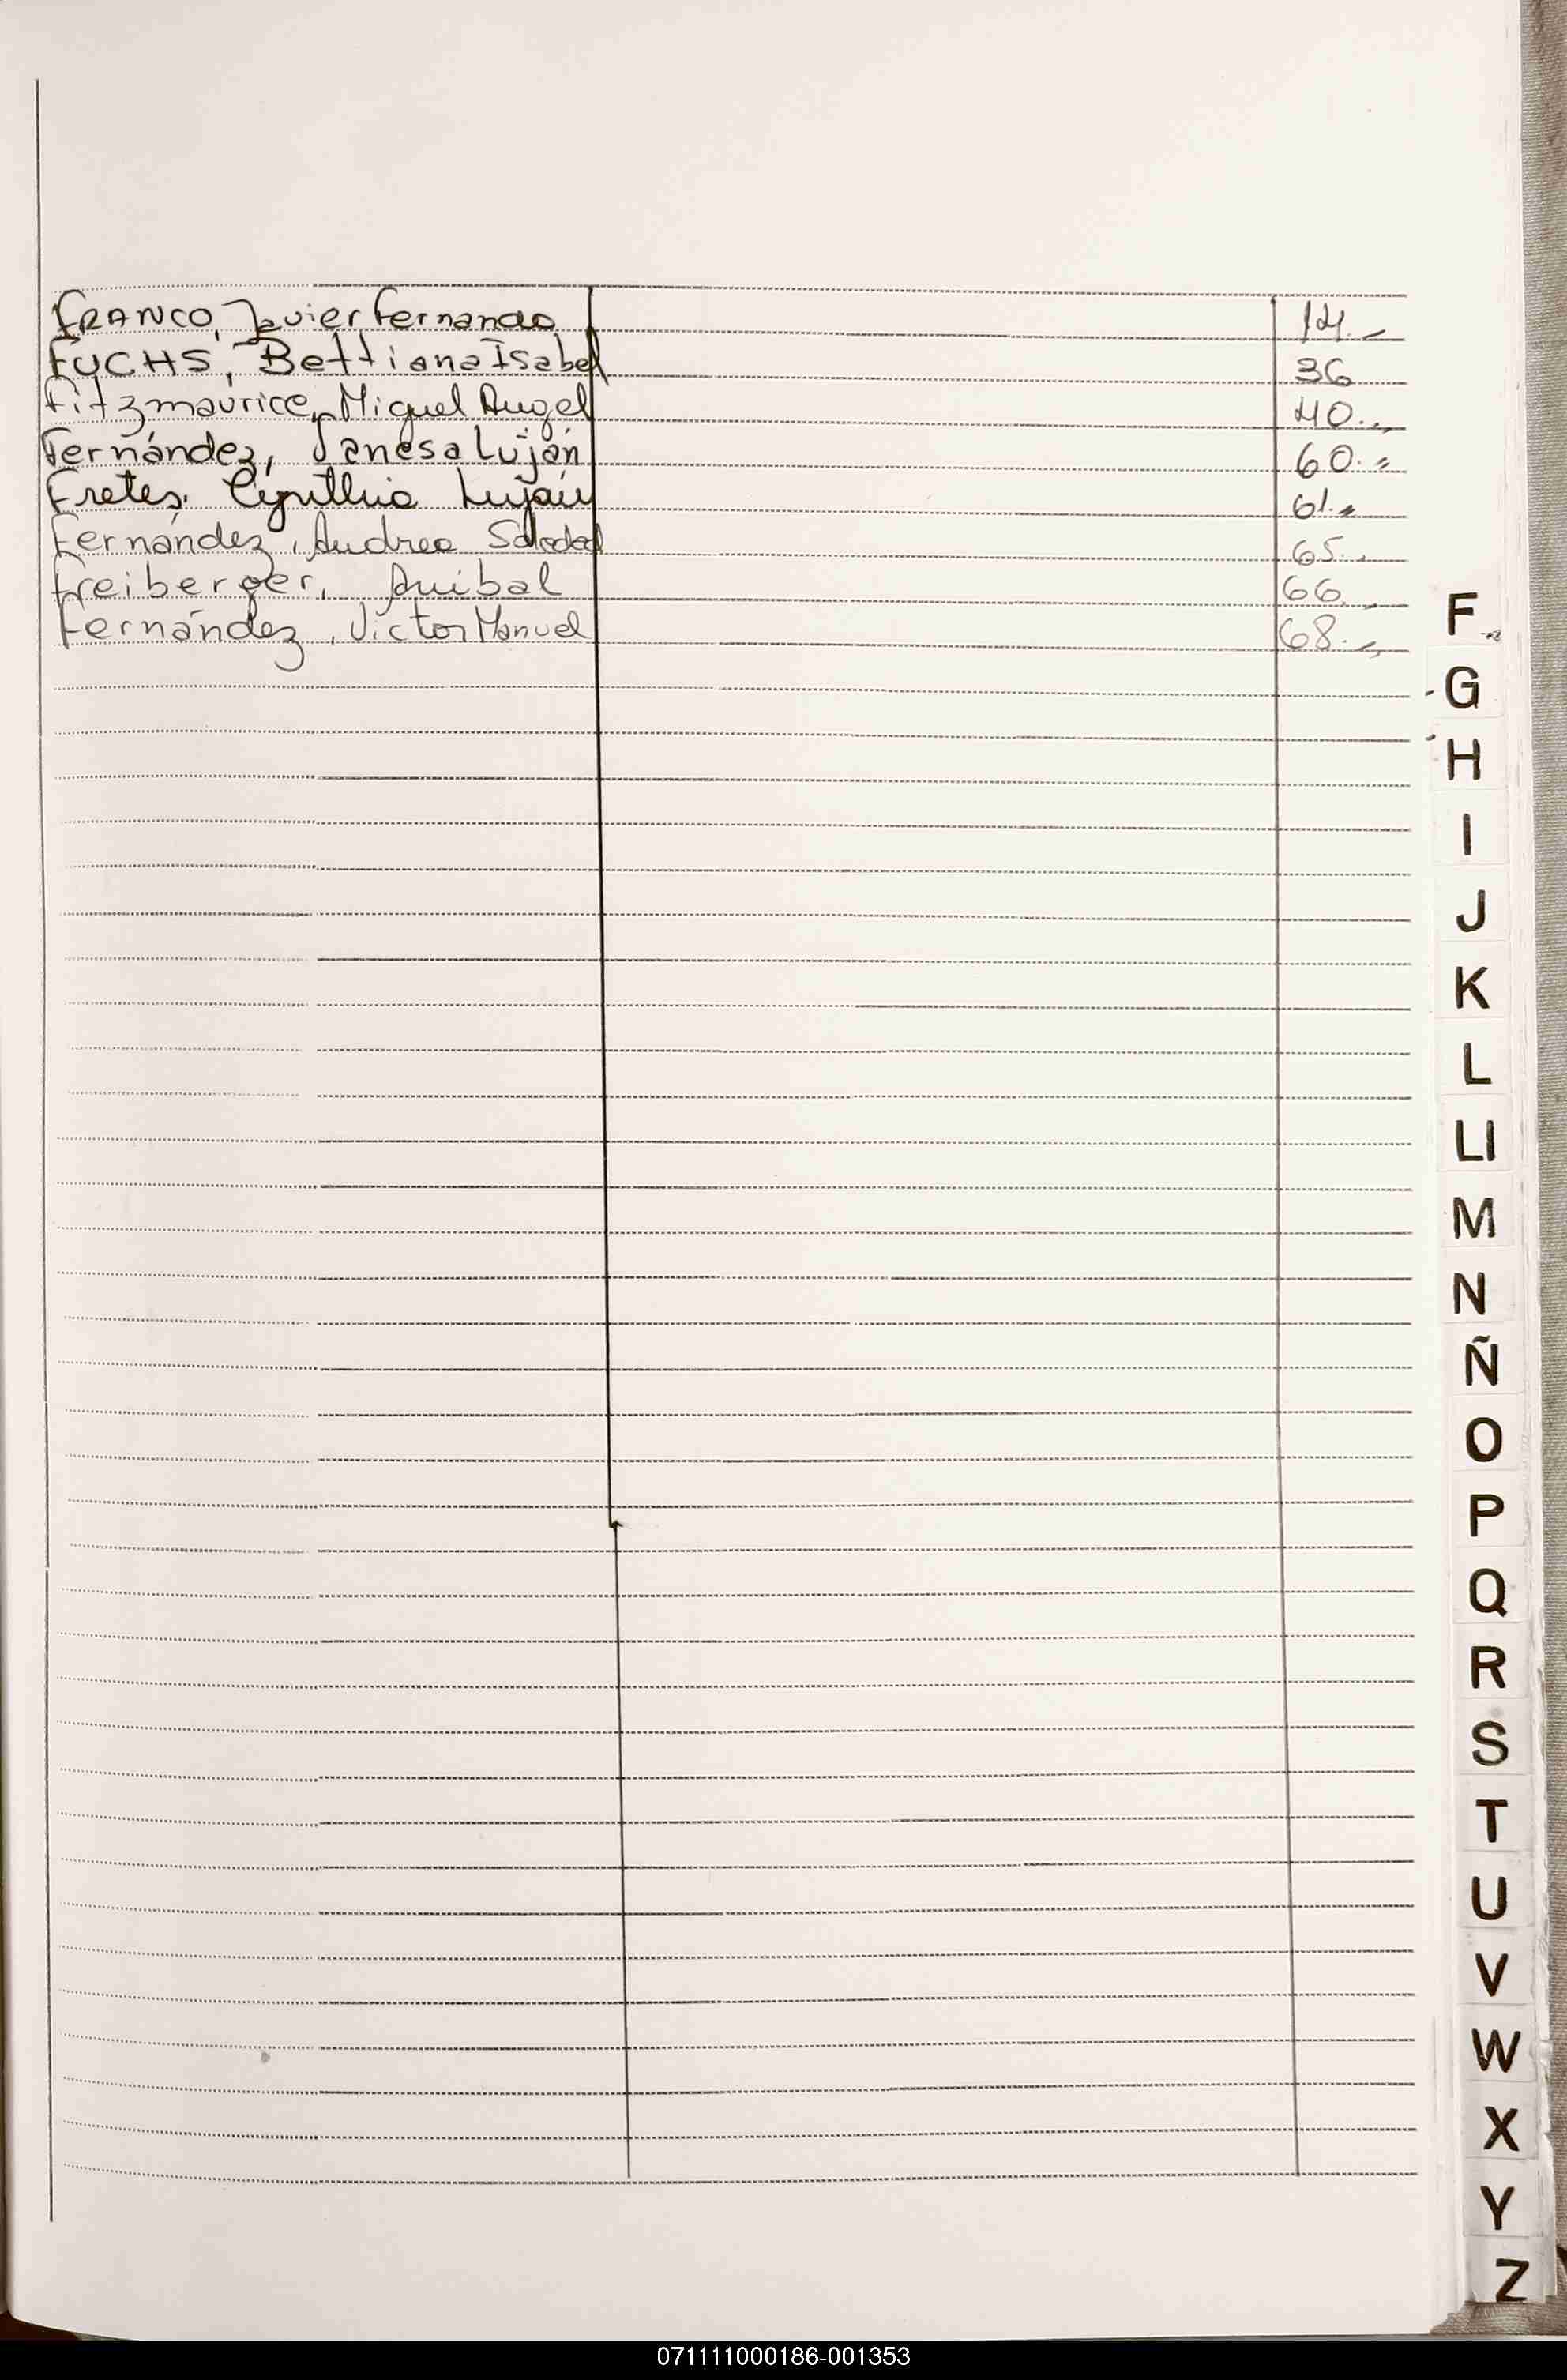 FRANCO, Javier Fernando 14.-
FUCHS, Bettiana Isabel 36
Fitzmaurice, Miguel Angel 40.-
Fernández, Vanesa Luján 60.-
Fretes, Cynthia Luján 61.-
Fernández, Andrea Soledad 65.-
Freiberger, Anibal 66.-
Fernández, Victor Manuel 68.-
F
G
H
I
J
K
L
Ll
M
N
Ñ
O
P
Q
R
S
T
U
V
W
X
Y
Z
071111000186-001353